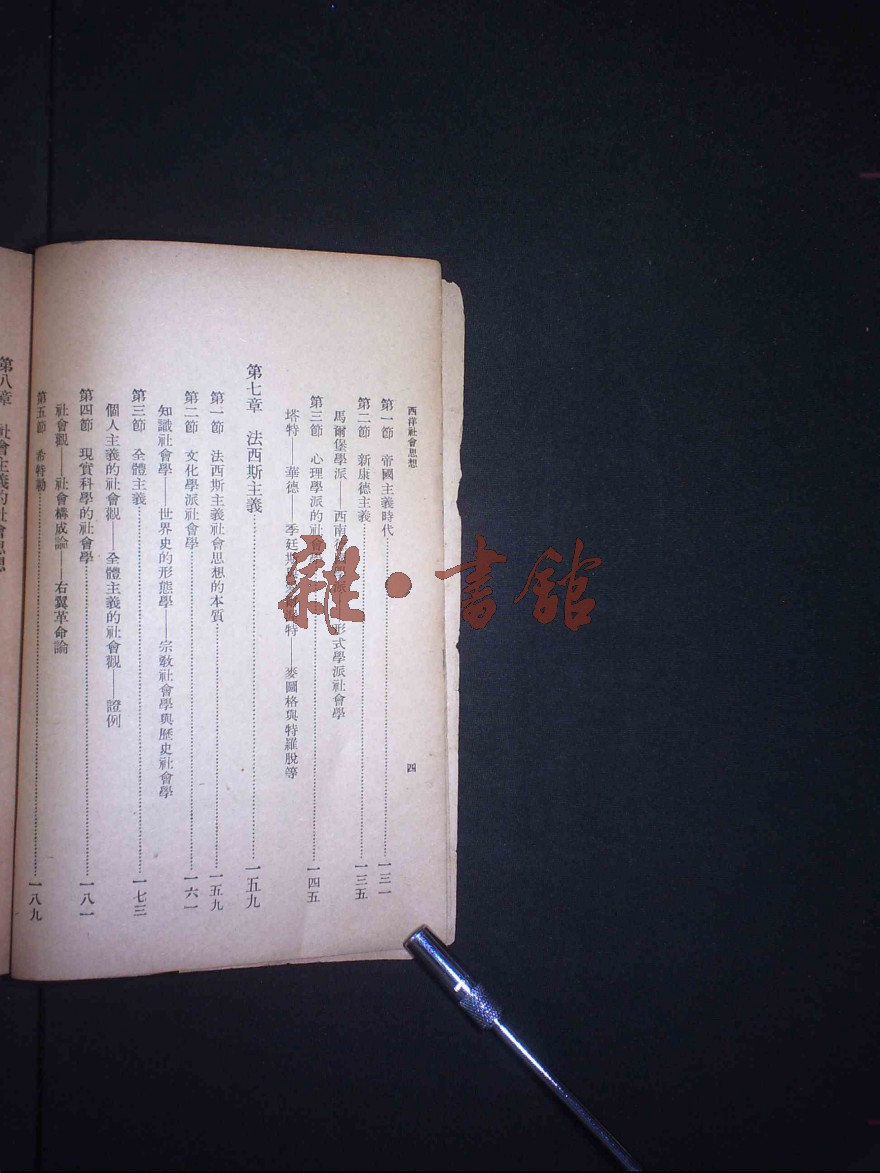 西洋社會思想
四
第一節 帝國主義時代……一三一
第二節 新康德主義……一三五
馬爾堡學派——西南 形式學派社會學
第三節 心理學派的社會 ……一四五
塔特——華德——季廷斯 特——麥圖格與特羅脫等
第七章 法西斯主義……一五九
第一節 法西斯主義社會思想的本質……一五九
第二節 文化學派社會學……一六一
知識社會學——世界史的形態學——宗敎社會學與歷史社會學
第三節 全體主義……一七三
個人主義的社會觀——全體主義的社會觀——證例
第四節 現実科學的社會學……一八一
社會觀——社會構成論——右翼革命論
第五節 希特勒……一八九
第八章 社會主義的社會思想
雜·書館